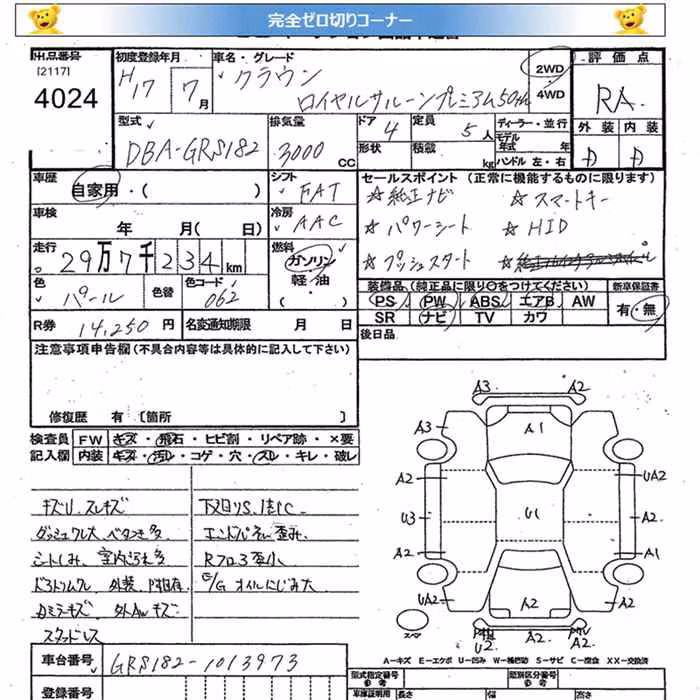 完全ゼロ切りコーナー
出品番号
[2117]
4024
初度登録年月
H17 7月
車名・グレード
クラウン
ロイヤルサルーンプレミアム50th
2WD
4WD
評価点
RA
外装 内装
D D
型式
DBA-GRS182
排気量
3000 CC
ドア
4
形状
定員
5人
積載
kg
ディーラー・並行
モデル年式 年
ハンドル 左・右
車歴
自家用・( )
シフト
FAT
車検
年 月( 日)
冷房
AAC
セールスポイント (正常に機能するものに限ります)
☆純正ナビ ☆スマートキー
☆パワーシート ☆HID
☆プッシュスタート
走行
29万7千234km
燃料
ガソリン
軽油
・( )
色
パール
色替
色コード
062
装備品(純正品に限り○をつけてください)
PS PW ABS エアB AW
SR ナビ TV カワ
新車保証書
有・無
R券 14,250円
名変通知期限 月 日
後日品
注意事項申告欄(不具合内容等は具体的に記入して下さい)
修復歴 有 [箇所 ]
検査員 FW キズ・飛石・ヒビ割・リペア跡・×要
記入欄 内装 キズ・汚レ・コゲ・穴・スレ・キレ・破レ
キズU、スレキズ
シートしみ、
エンドパネル歪み
E/G オイルにじみ大
外AWキズ
スタッドレス
車台番号 GRS182-1013973
登録番号
A3 A2
A3 A1 A2
A2 UA2
U3 U1 A2
A2 A1
UA2 A2 A2
スペア
U2
A-キズ E-エクボ U-凹み W-補修跡 S-サビ C-腐食 XX-交換済
型式指定番号 類別区分番号
車庫証明用 長さ 幅 高さ